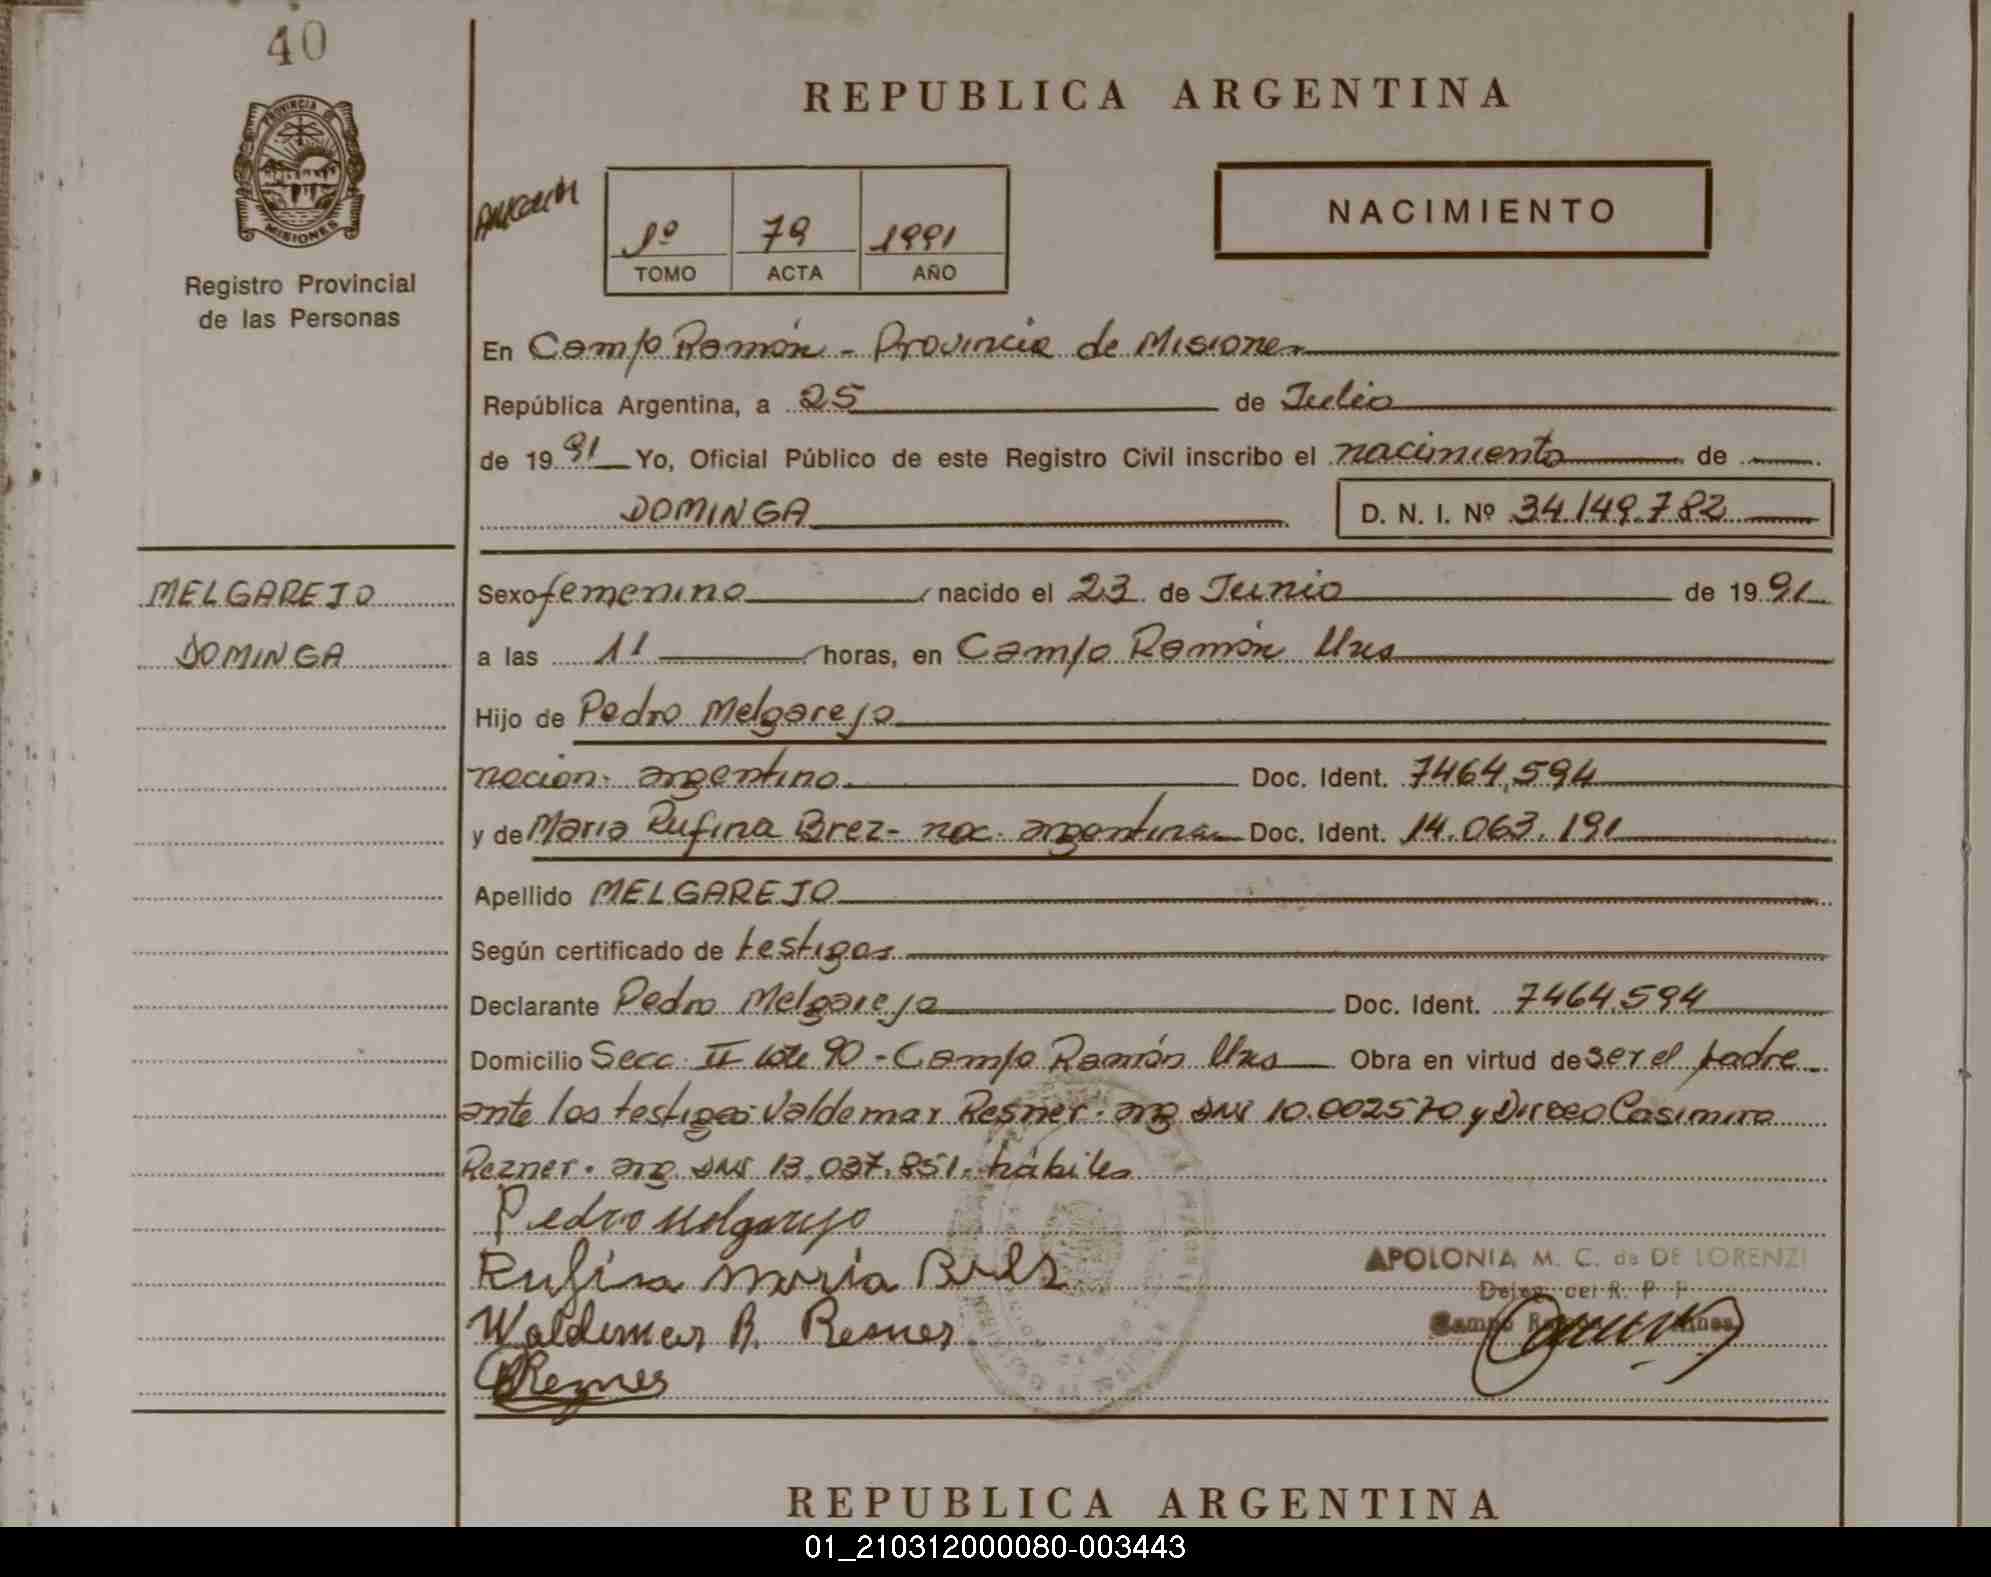 40
PROVINCIA DE
MISIONES
Registro Provincial
de las Personas
REPUBLICA ARGENTINA
1º 79 1991
TOMO ACTA AÑO
NACIMIENTO
En Campo Ramón - Provincia de Misiones
República Argentina, a 25 de Julio
de 1991 Yo, Oficial Público de este Registro Civil inscribo el nacimiento de
DOMINGA D. N. I. Nº 34.149.782
MELGAREJO
DOMINGA
Sexo femenino nacido el 23 de Junio de 1991
a las 11 horas, en Campo Ramón Mns
Hijo de Pedro Melgarejo
nacion. argentino Doc. Ident. 7464,594
y de Maria Rufina Brez - nac. argentina Doc. Ident. 14.063.191
Apellido MELGAREJO
Según certificado de testigos
Declarante Pedro Melgarejo Doc. Ident. 7464.594
Domicilio Secc. II lote 90 - Campo Ramón Mns Obra en virtud de ser el padre
ante los testigos Valdemar Resner. arg DNI 10.002570 y Casimiro
Rezner. arg. DNI 13.037.851. hábiles
Pedro Melgarejo
Rufina Maria
Waldemar R. Resner
APOLONIA M. C. de DE LORENZI
Deleg. del R. P. P.
Campo Ramón Mnes
REPUBLICA ARGENTINA
01_210312000080-003443